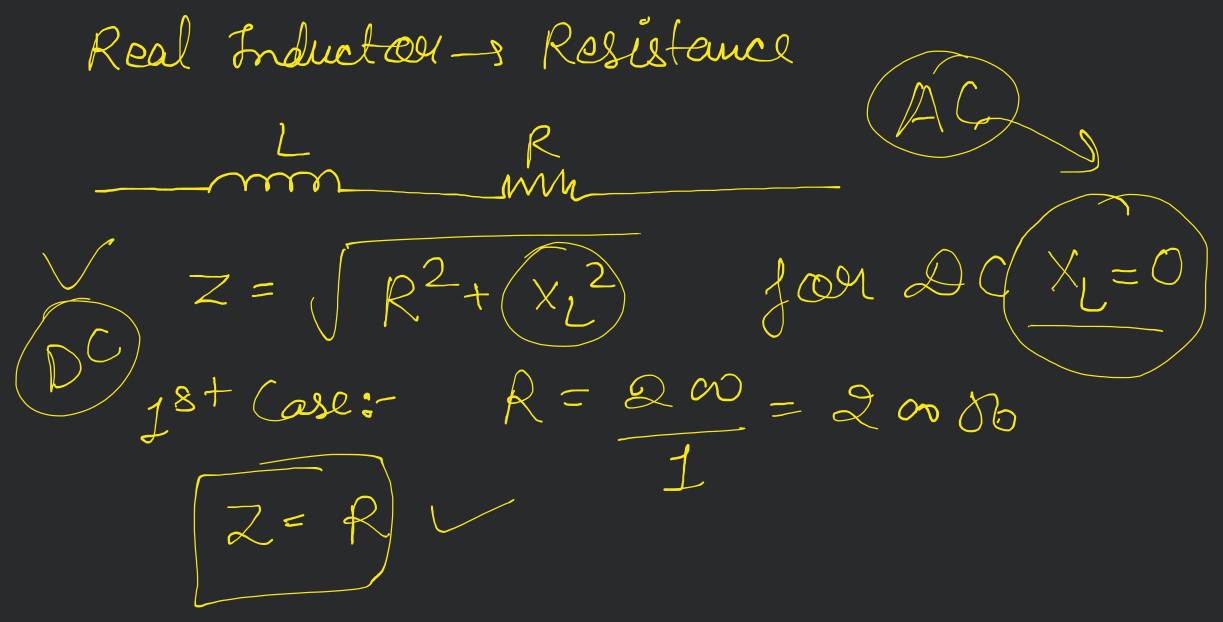 Real Inductor → Resistance
AC
L R
Z = √R² + X_L² for DC X_L = 0
DC
1st Case :- R = 200 / 1 = 200
Z = R